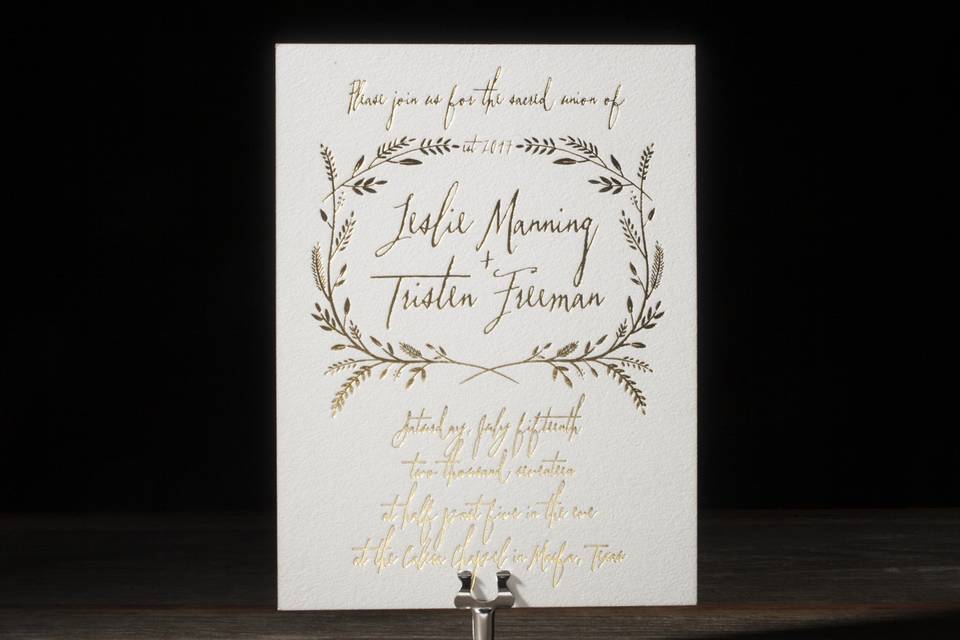 Please join us for the sacred union of
est 2017
Leslie Manning
+
Tristen Freeman
Saturday, July fifteenth
two thousand seventeen
at half past five in the eve
at the Cabin Chapel in Marfa, Texas